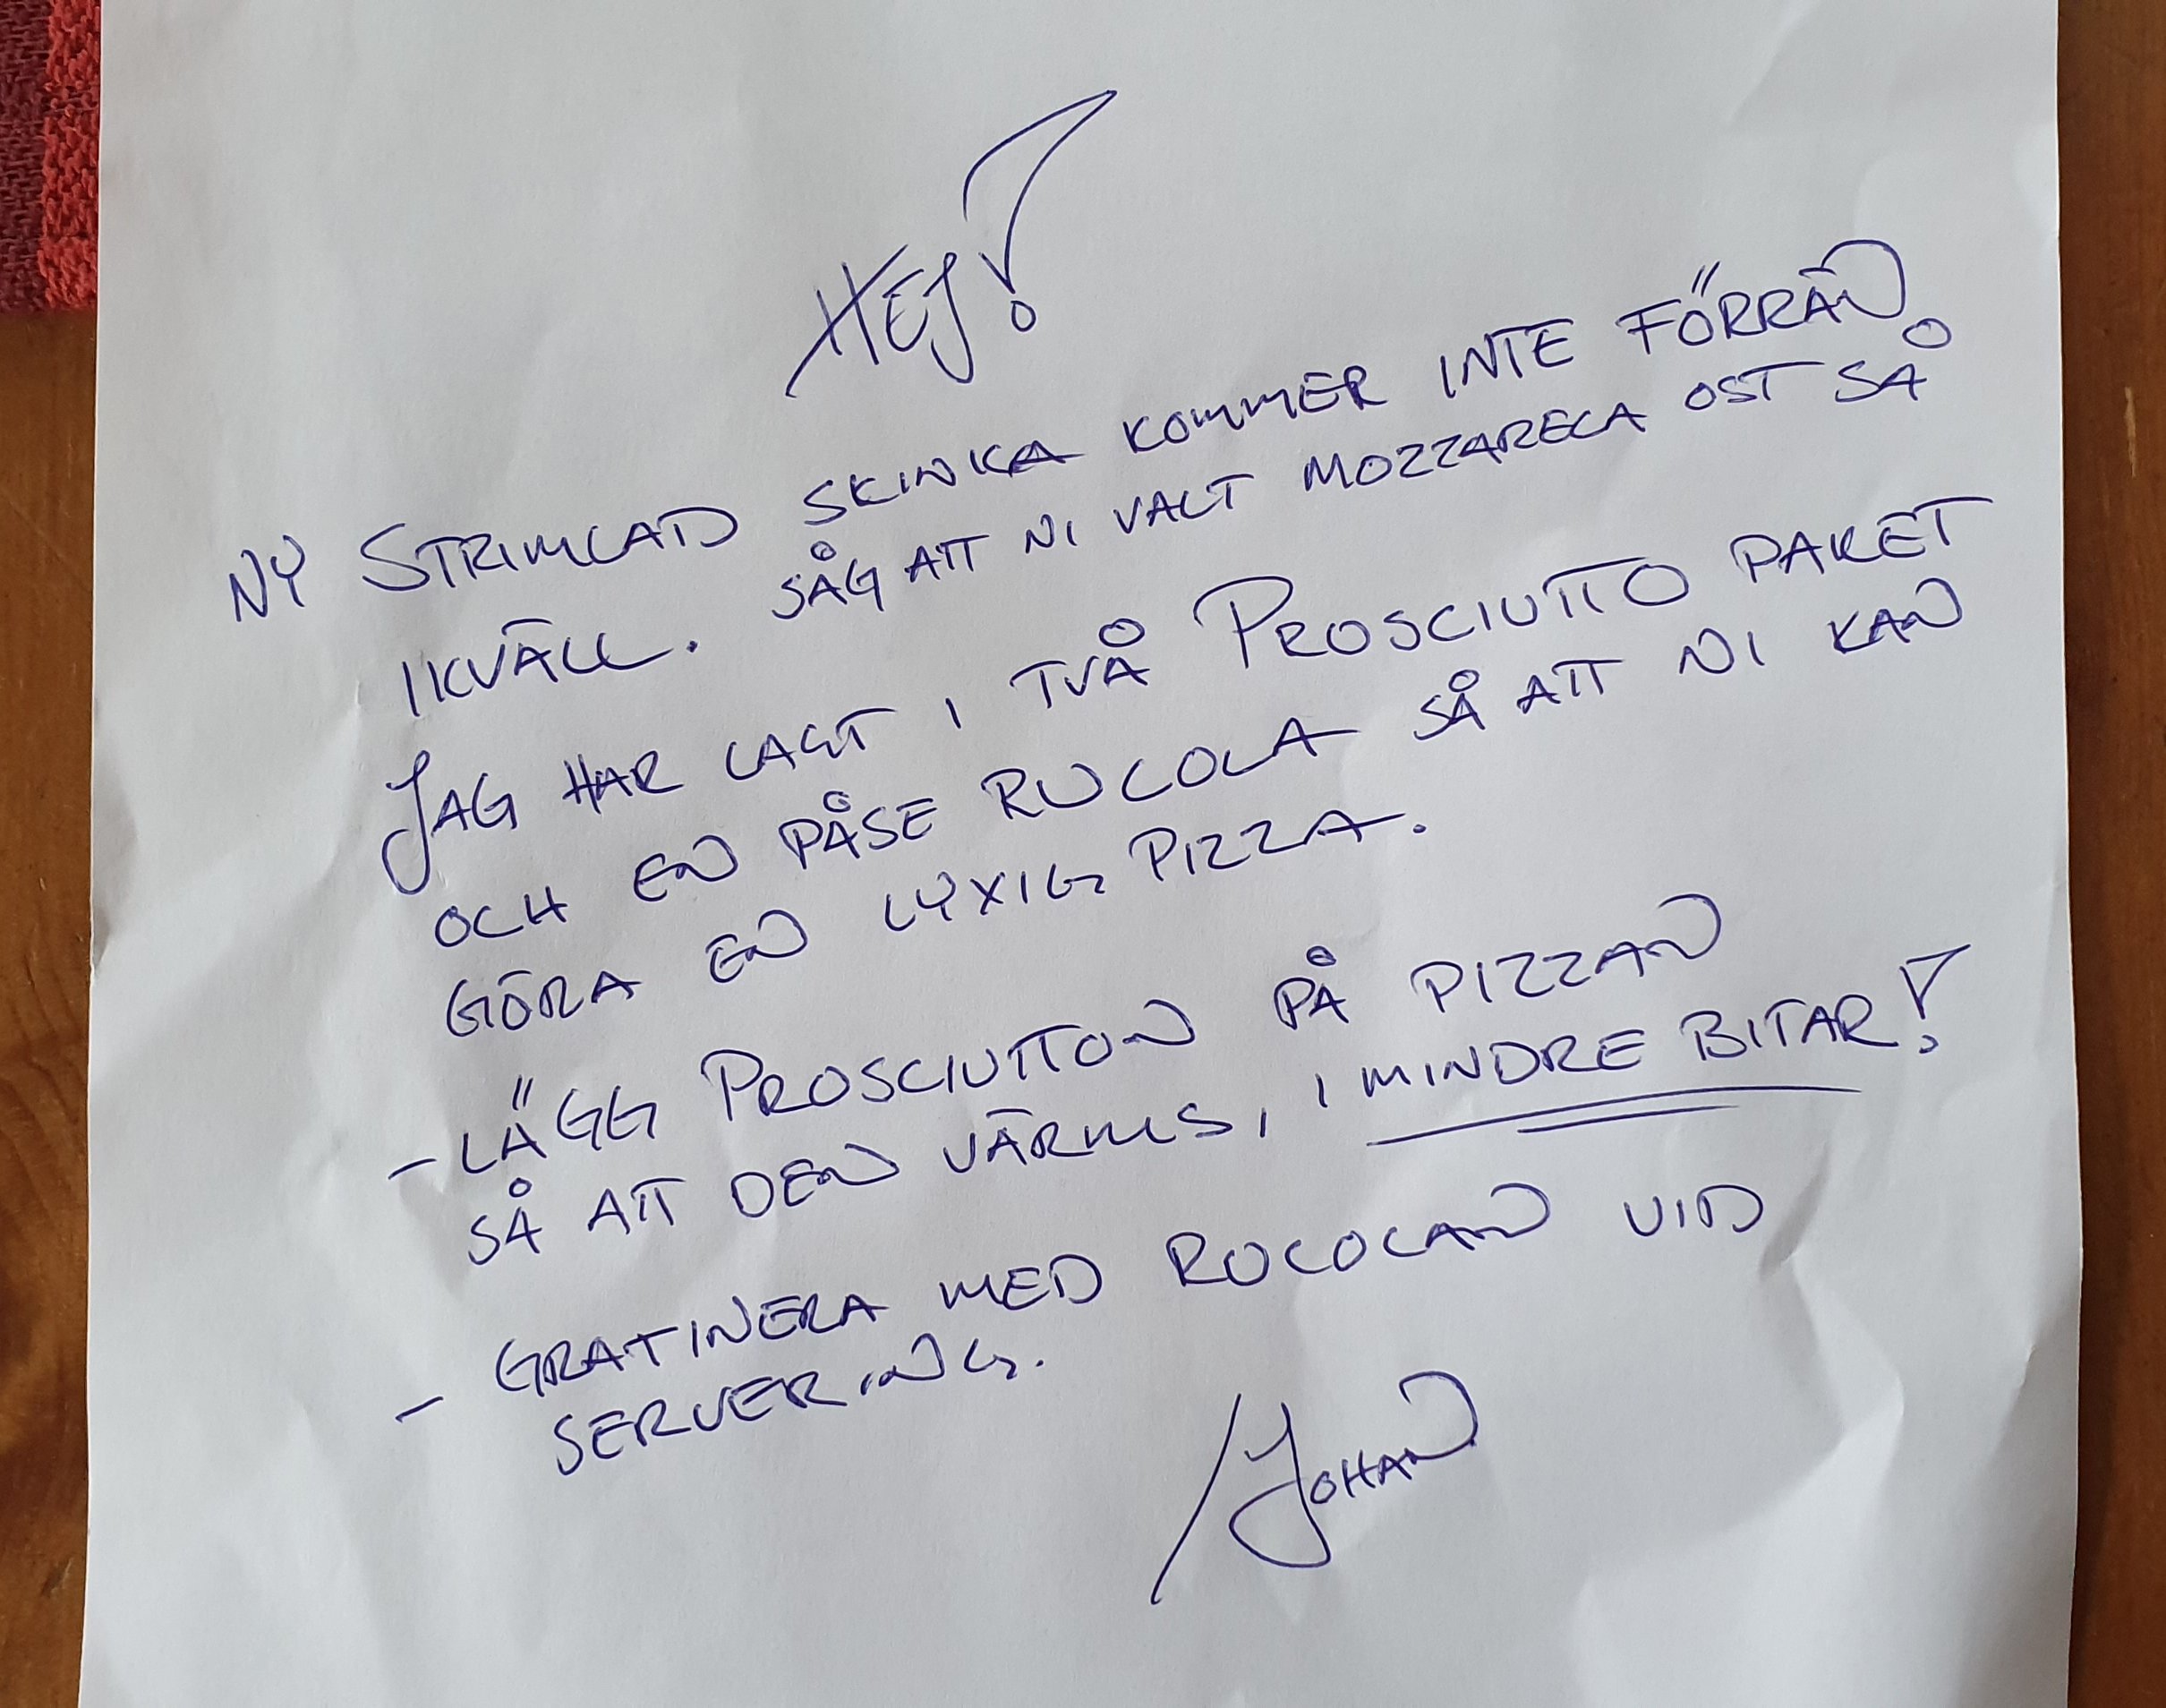 HEJ!
NY STRIMLAD SKINKA KOMMER INTE FÖRRÄN
IKVÄLL. SÅG ATT NI VALT MOZZARELLA OST SÅ
JAG HAR LAGT I TVÅ PROSCIUTTO PAKET
OCH EN PÅSE RUCOLA SÅ ATT NI KAN
GÖRA EN LYXIG PIZZA.
- LÄGG PROSCIUTTON PÅ PIZZAN
SÅ ATT DEN VÄRMS, I MINDRE BITAR!
- GRATINERA MED RUCOLAN VID
SERVERING.
/JOHAN